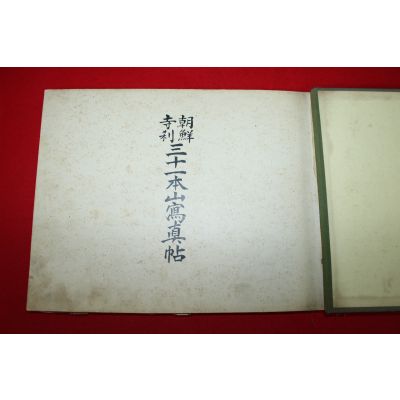 朝鮮
寺刹
三十一本山寫真帖